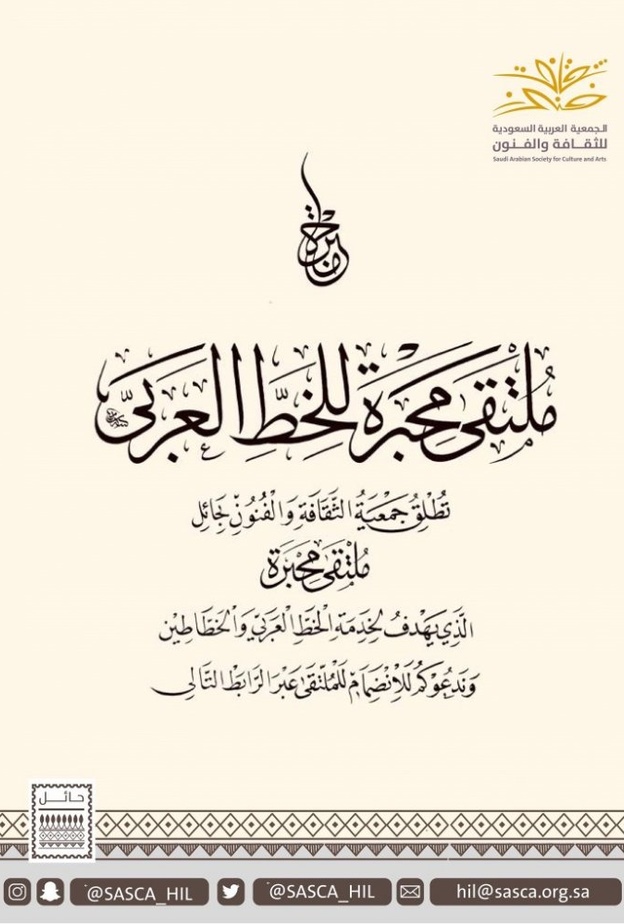 الجمعية العربية السعودية
للثقافة والفنون
Saudi Arabian Society for Culture and Arts
مُلتَقى مِحْبَرَة للخَطِّ العَرَبيّ
تُطْلِقُ جَمْعِيَةُ الثَّقَافَةِ وَالْفُنُونِ بِحَائِل
مُلْتَقَى مِحْبَرَة
الَّذِي يَهْدِفُ لِخِدْمَةِ الْخَطِّ الْعَرَبِيِّ وَالْخَطَّاطِين
وَنَدْعُوكُمْ لِلْاِنْضِمَامِ لِلْمُلْتَقَى عَبْرَ الرَّابِطِ التَّالِي
حائل
@SASCA_HIL
@SASCA_HIL
hil@sasca.org.sa